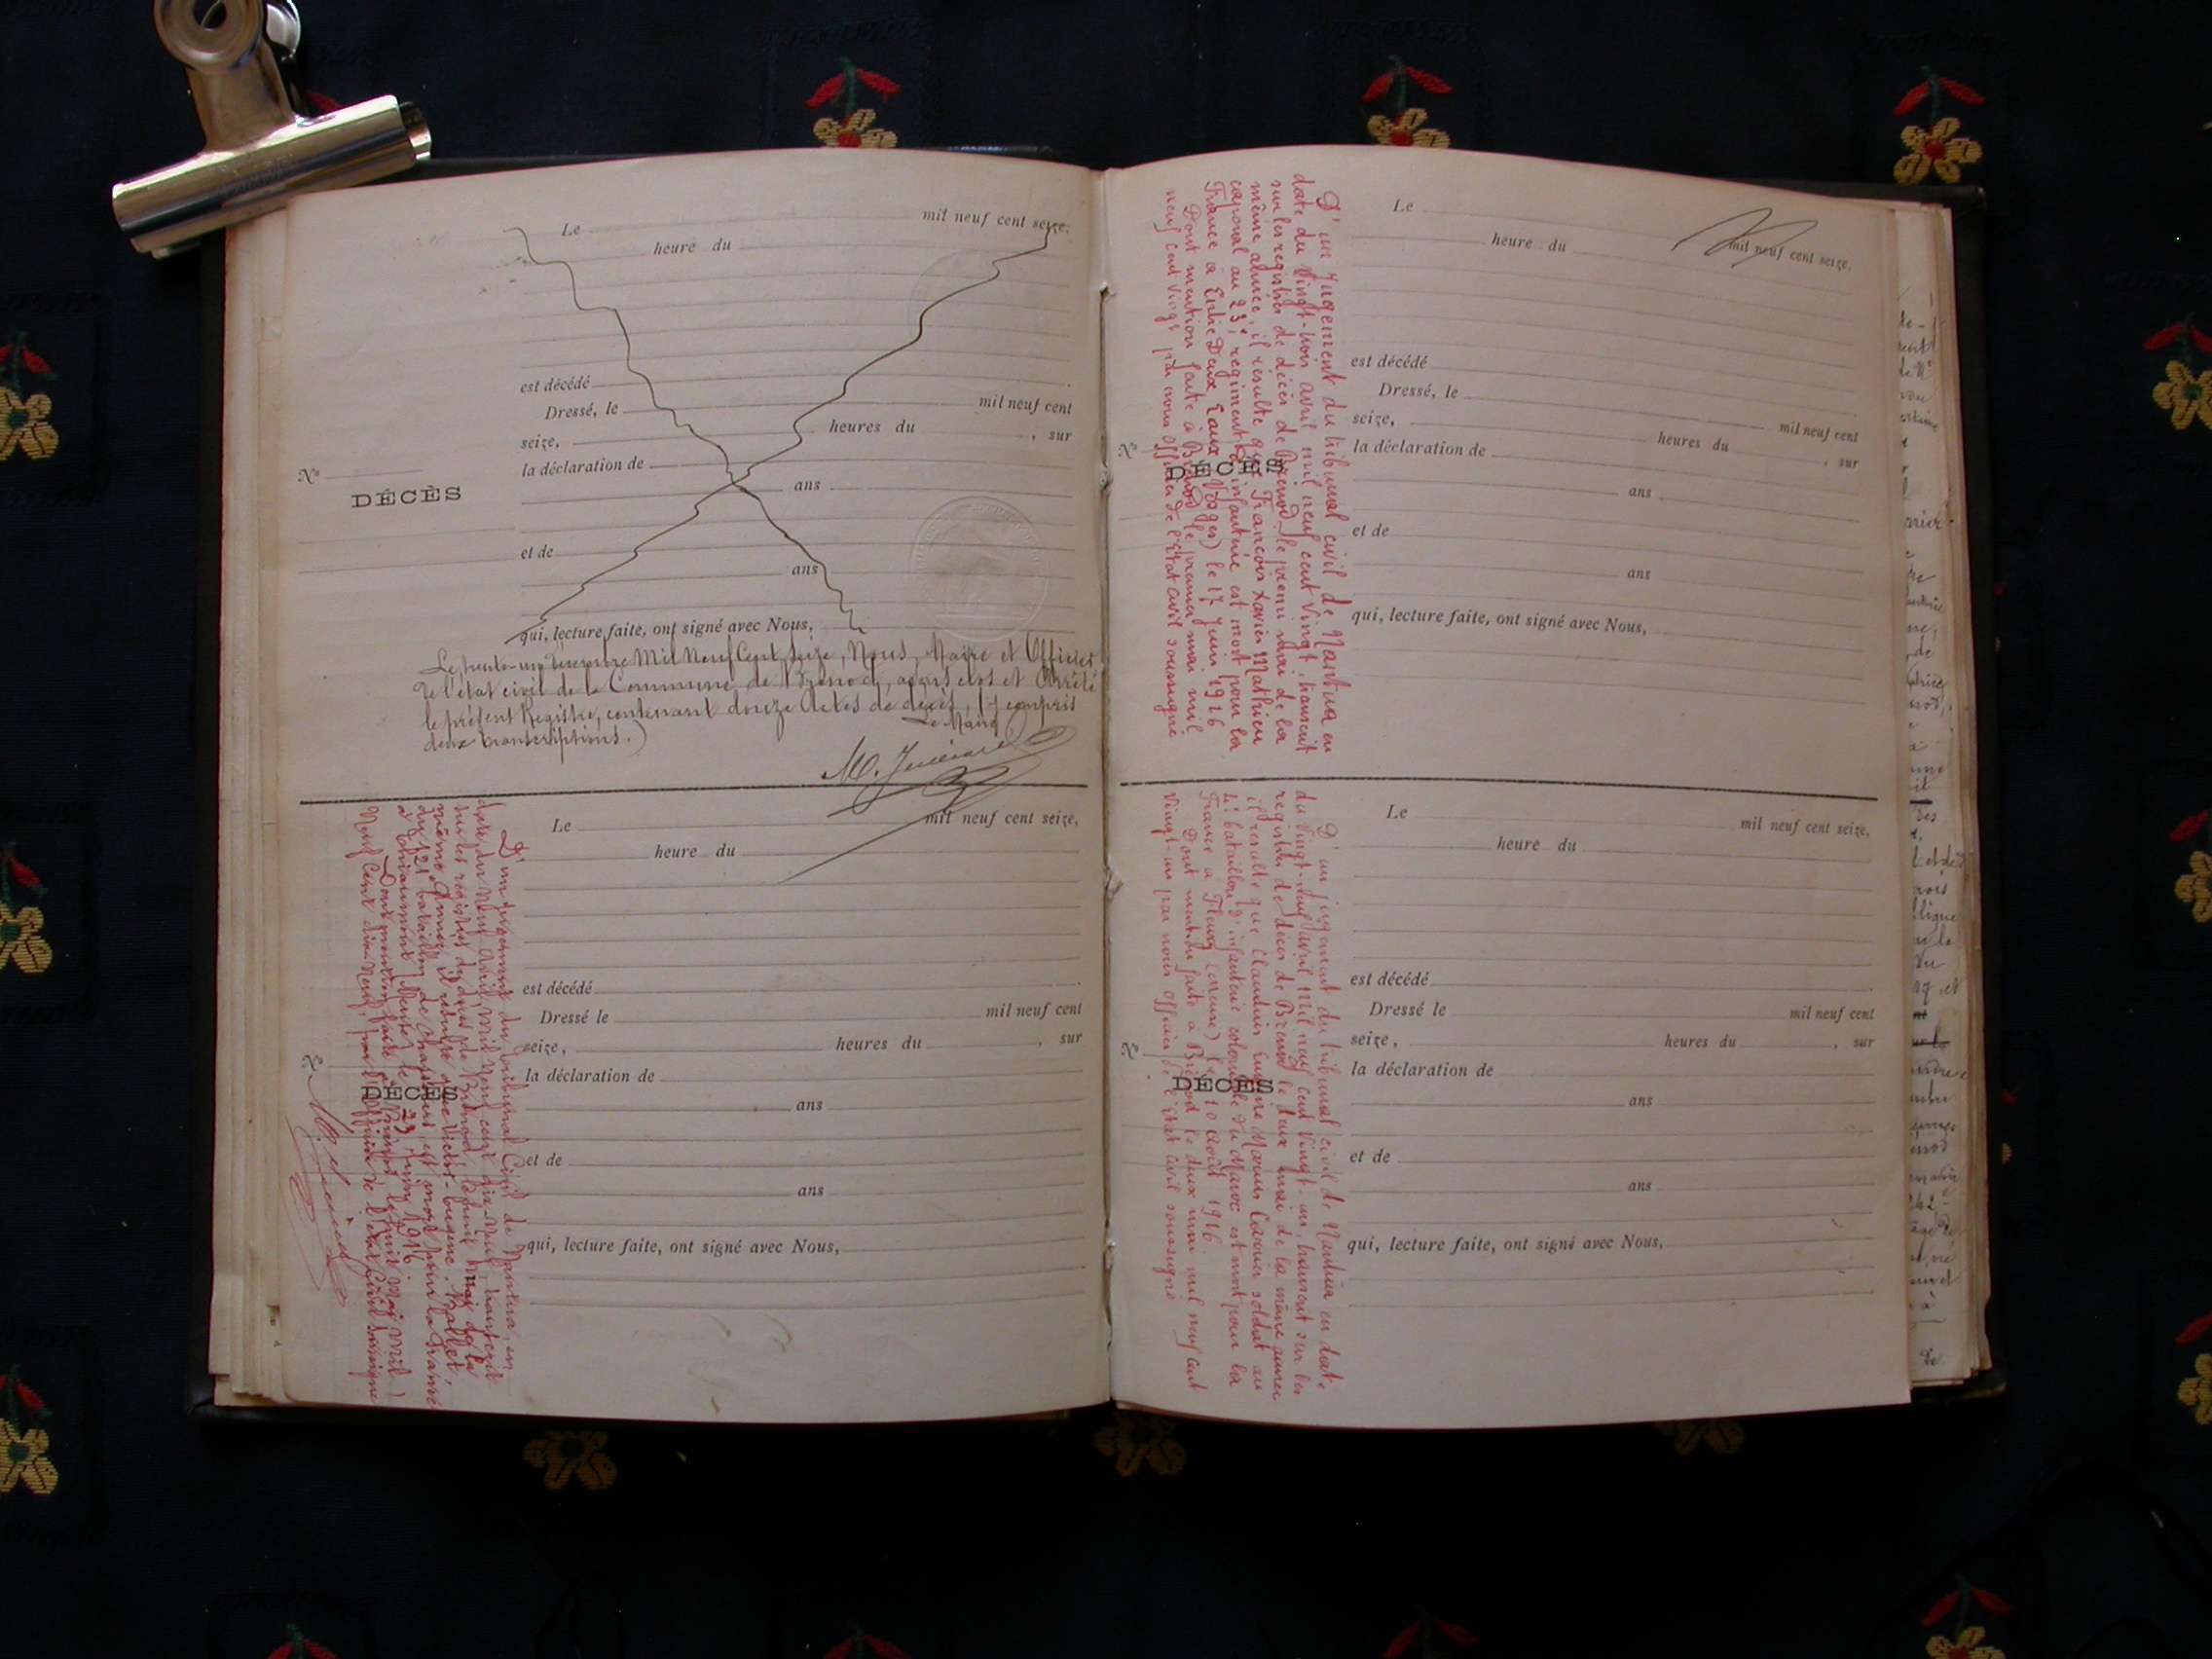 Le mil neuf cent seize.
heure du
est décédé
Dressé, le mil neuf cent
seize, heures du , sur
la déclaration de
No
DÉCÈS
ans
et de
ans
qui, lecture faite, ont signé avec Nous,
Le trente-un Décembre Mil Neuf Cent Seize, Nous, Maire et Officier
de l'état civil de la Commune de Brénod, avons clos et Arrêté
le présent Registre, contenant douze Actes de décès, (y compris
deux transcriptions.)
Le Maire
Le mil neuf cent seize.
heure du
est décédé
Dressé le mil neuf cent
seize, heures du , sur
la déclaration de
No
DÉCÈS
ans
et de
ans
qui, lecture faite, ont signé avec Nous,
D'un jugement du Tribunal Civil de Nantua, en
date du Neuf Avril Mil Neuf cent dix-neuf, transcrit
sur les registres de décès de Brénod, le huit mai de la
même Année, il résulte que Victor-Eugène Ballet,
du 21e bataillon de chasseurs, est mort pour la France
à Thiaumont Meuse le 23 Juin 1916.
Dont mention faite à Brénod le huit Mai Mil
Neuf Cent dix-Neuf, par l'Officier de l'état Civil soussigné
Le mil neuf cent seize.
heure du
est décédé
Dressé, le mil neuf cent
seize, heures du , sur
la déclaration de
No
DÉCÈS
ans
et de
ans
qui, lecture faite, ont signé avec Nous,
D'un jugement du tribunal civil de Nantua en
date du vingt-trois avril mil neuf cent vingt, transcrit
sur les registres de décès de Brénod le premier mai de la
même année, il résulte que François Xavier Mathieu
caporal au 23e régiment d'infanterie est mort pour la
France à Entre Deux Eaux (Vosges) le 17 Juin 1916
Dont mention faite à Brénod le premier mai mil
neuf cent vingt par nous officier de l'état civil soussigné
Le mil neuf cent seize.
heure du
est décédé
Dressé le mil neuf cent
seize, heures du , sur
la déclaration de
No
DÉCÈS
ans
et de
ans
qui, lecture faite, ont signé avec Nous,
D'un jugement du tribunal civil de Nantua en date
du vingt-neuf avril mil neuf cent vingt-un, transcrit sur les
registres de décès de Brénod le deux mai de la même année
il résulte que Claudius Marius soldat au
bataillon d'infanterie coloniale du Maroc est mort pour la
France à Fleury (Meuse) le 10 août 1916.
Dont mention faite à Brénod le deux mai mil neuf cent
vingt un par nous officier de l'état civil soussigné